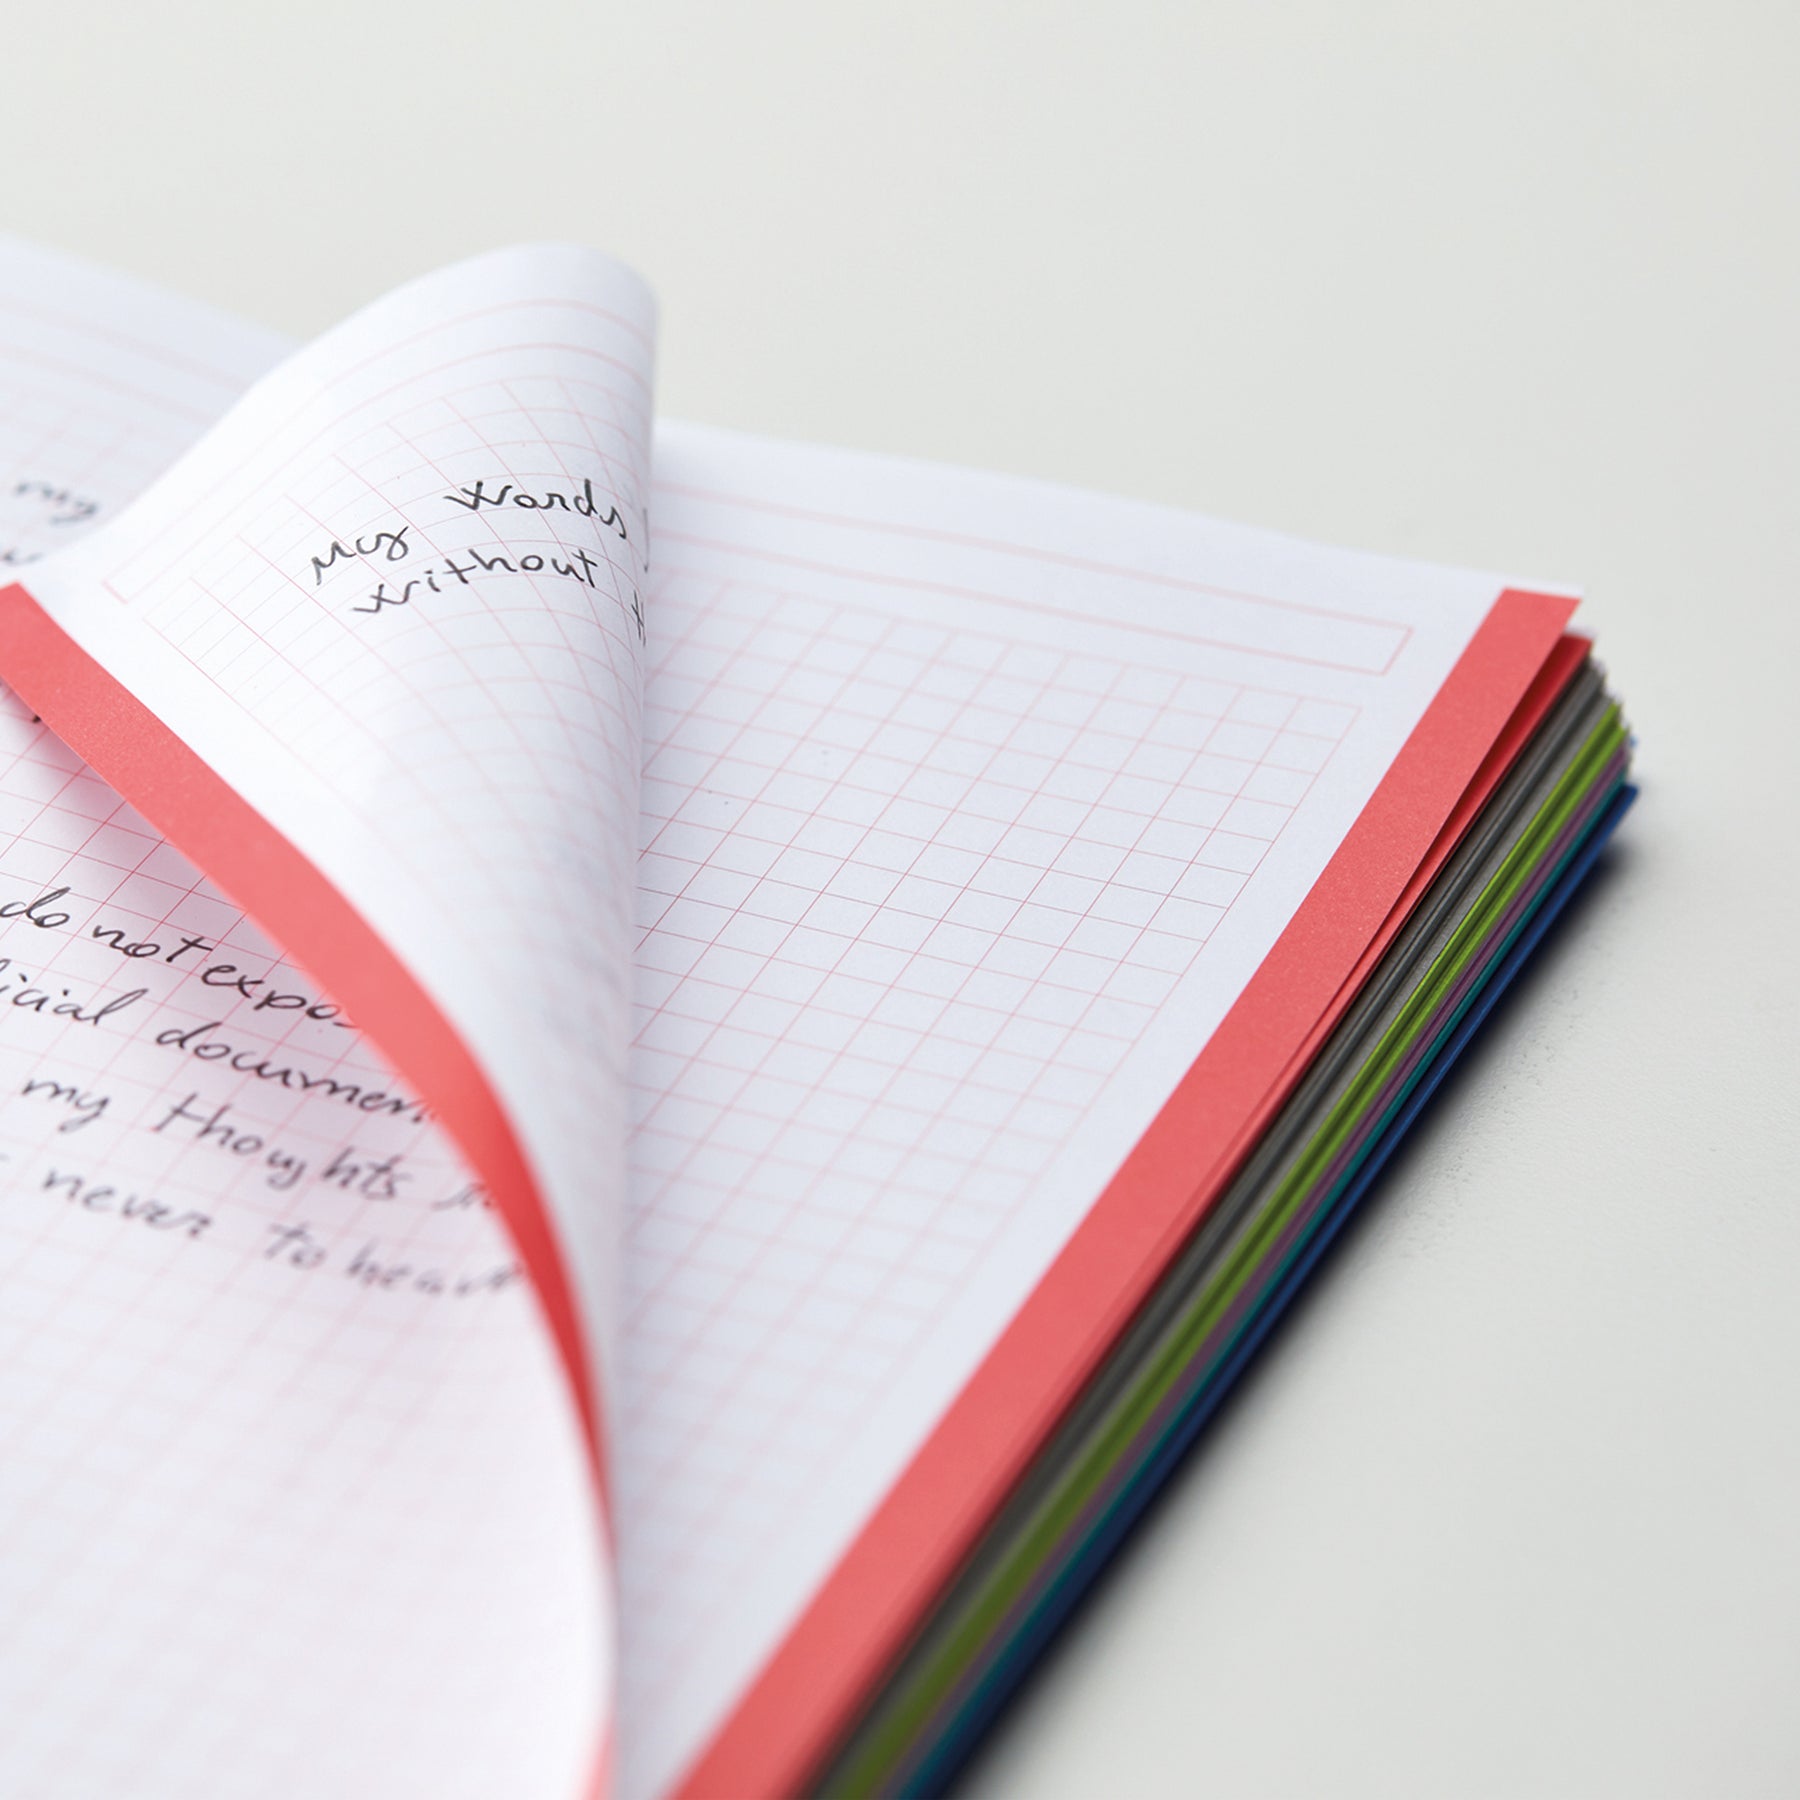 my
My words
without
do not expos
icial documen
my thoughts
never to hea